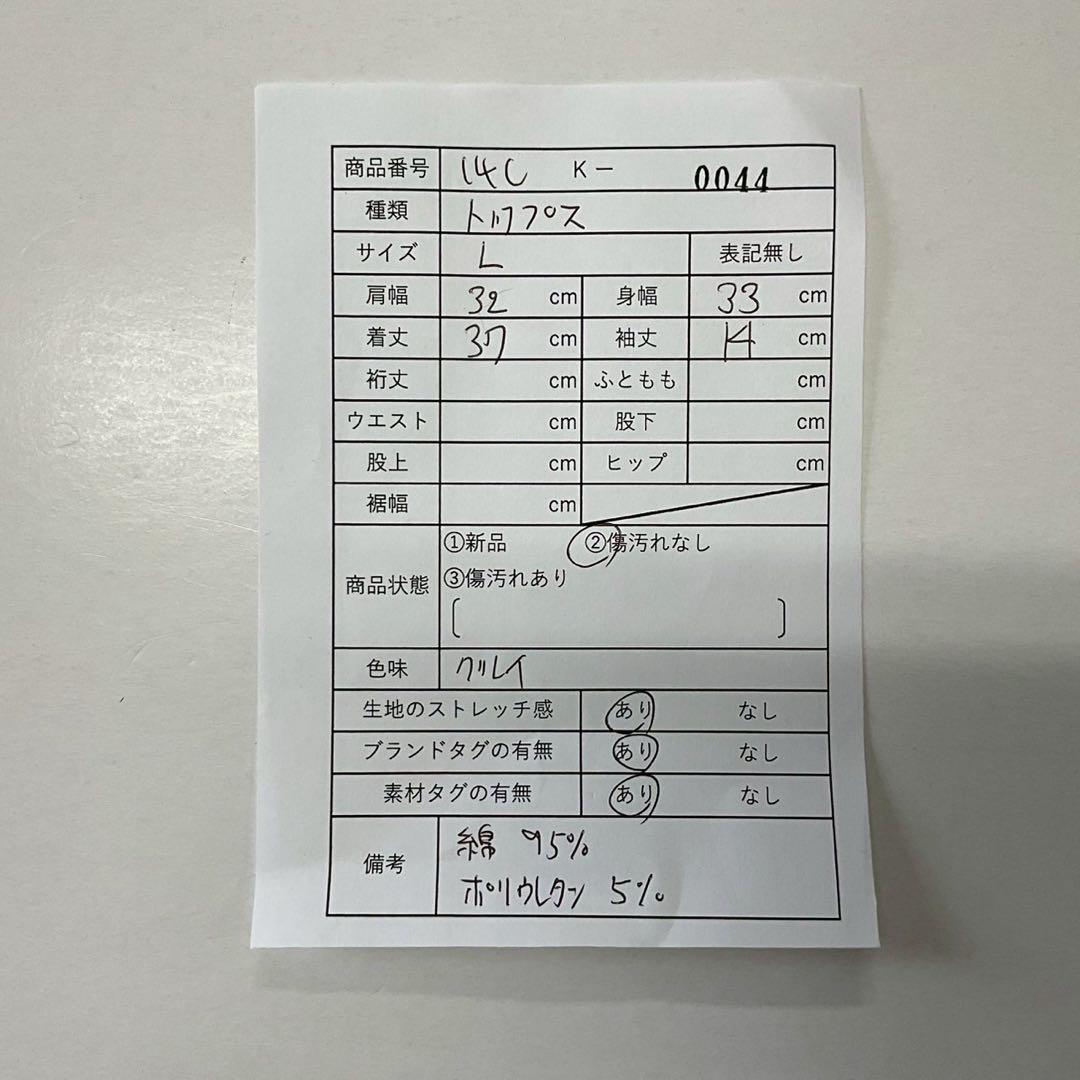 商品番号 14C K- 0044
種類 トップス
サイズ L 表記無し
肩幅 32 cm 身幅 33 cm
着丈 37 cm 袖丈 14 cm
裄丈 cm ふともも cm
ウエスト cm 股下 cm
股上 cm ヒップ cm
裾幅 cm
商品状態 ①新品 ②傷汚れなし
③傷汚れあり
[ ]
色味 グレイ
生地のストレッチ感 あり なし
ブランドタグの有無 あり なし
素材タグの有無 あり なし
備考 綿 95%
ポリウレタン 5%